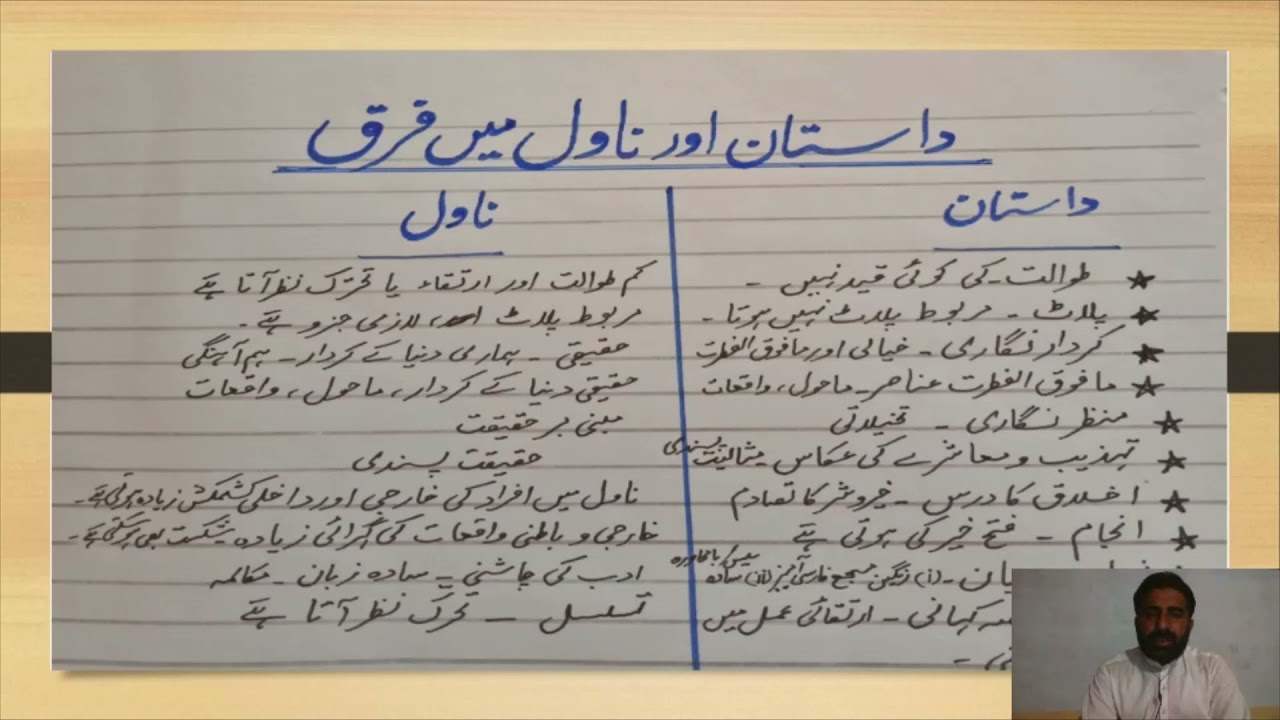 داستان اور ناول میں فرق
داستان
ناول
★ طوالت کی کوئی قید نہیں ۔
کم طوالت اور ارتقاء یا تحرّک نظر آتا ہے
★ پلاٹ ۔ مربوط پلاٹ نہیں ہوتا ۔
مربوط پلاٹ لازمی جزو ہے ۔
★ کردار نگاری ۔ خیالی اور مافوق الفطرت
حقیقی ۔ ہماری دنیا کے کردار ۔ ہم آہنگی
★ مافوق الفطرت عناصر ۔ ماحول، واقعات
حقیقی دنیا کے کردار، ماحول، واقعات
★ منظر نگاری ۔ تخیلاتی
مبنی بر حقیقت
★ تہذیب و معاشرے کی عکاس مثالیت پسندی
حقیقت پسندی
★ اخلاق کا درس ۔ خیر و شر کا تصادم
ناول میں افراد کی خارجی اور داخلی کشمکش زیادہ ہوتی ہے ۔
★ انجام ۔ فتح خیر کی ہوتی ہے
خارجی و باطنی واقعات کی گہرائی زیادہ شکست بھی ہو سکتی ہے ۔
(i) رنگین مسجع فارسی آمیز (ii) سادہ
ادب کی چاشنی ۔ سادہ زبان ۔ مکالمہ
کہانی ۔ ارتقائی عمل میں
تسلسل ۔ تحرّک نظر آتا ہے